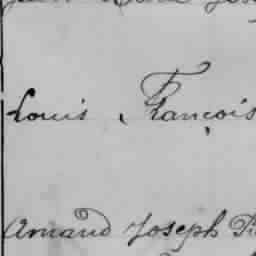 Louis, François
Amand Joseph